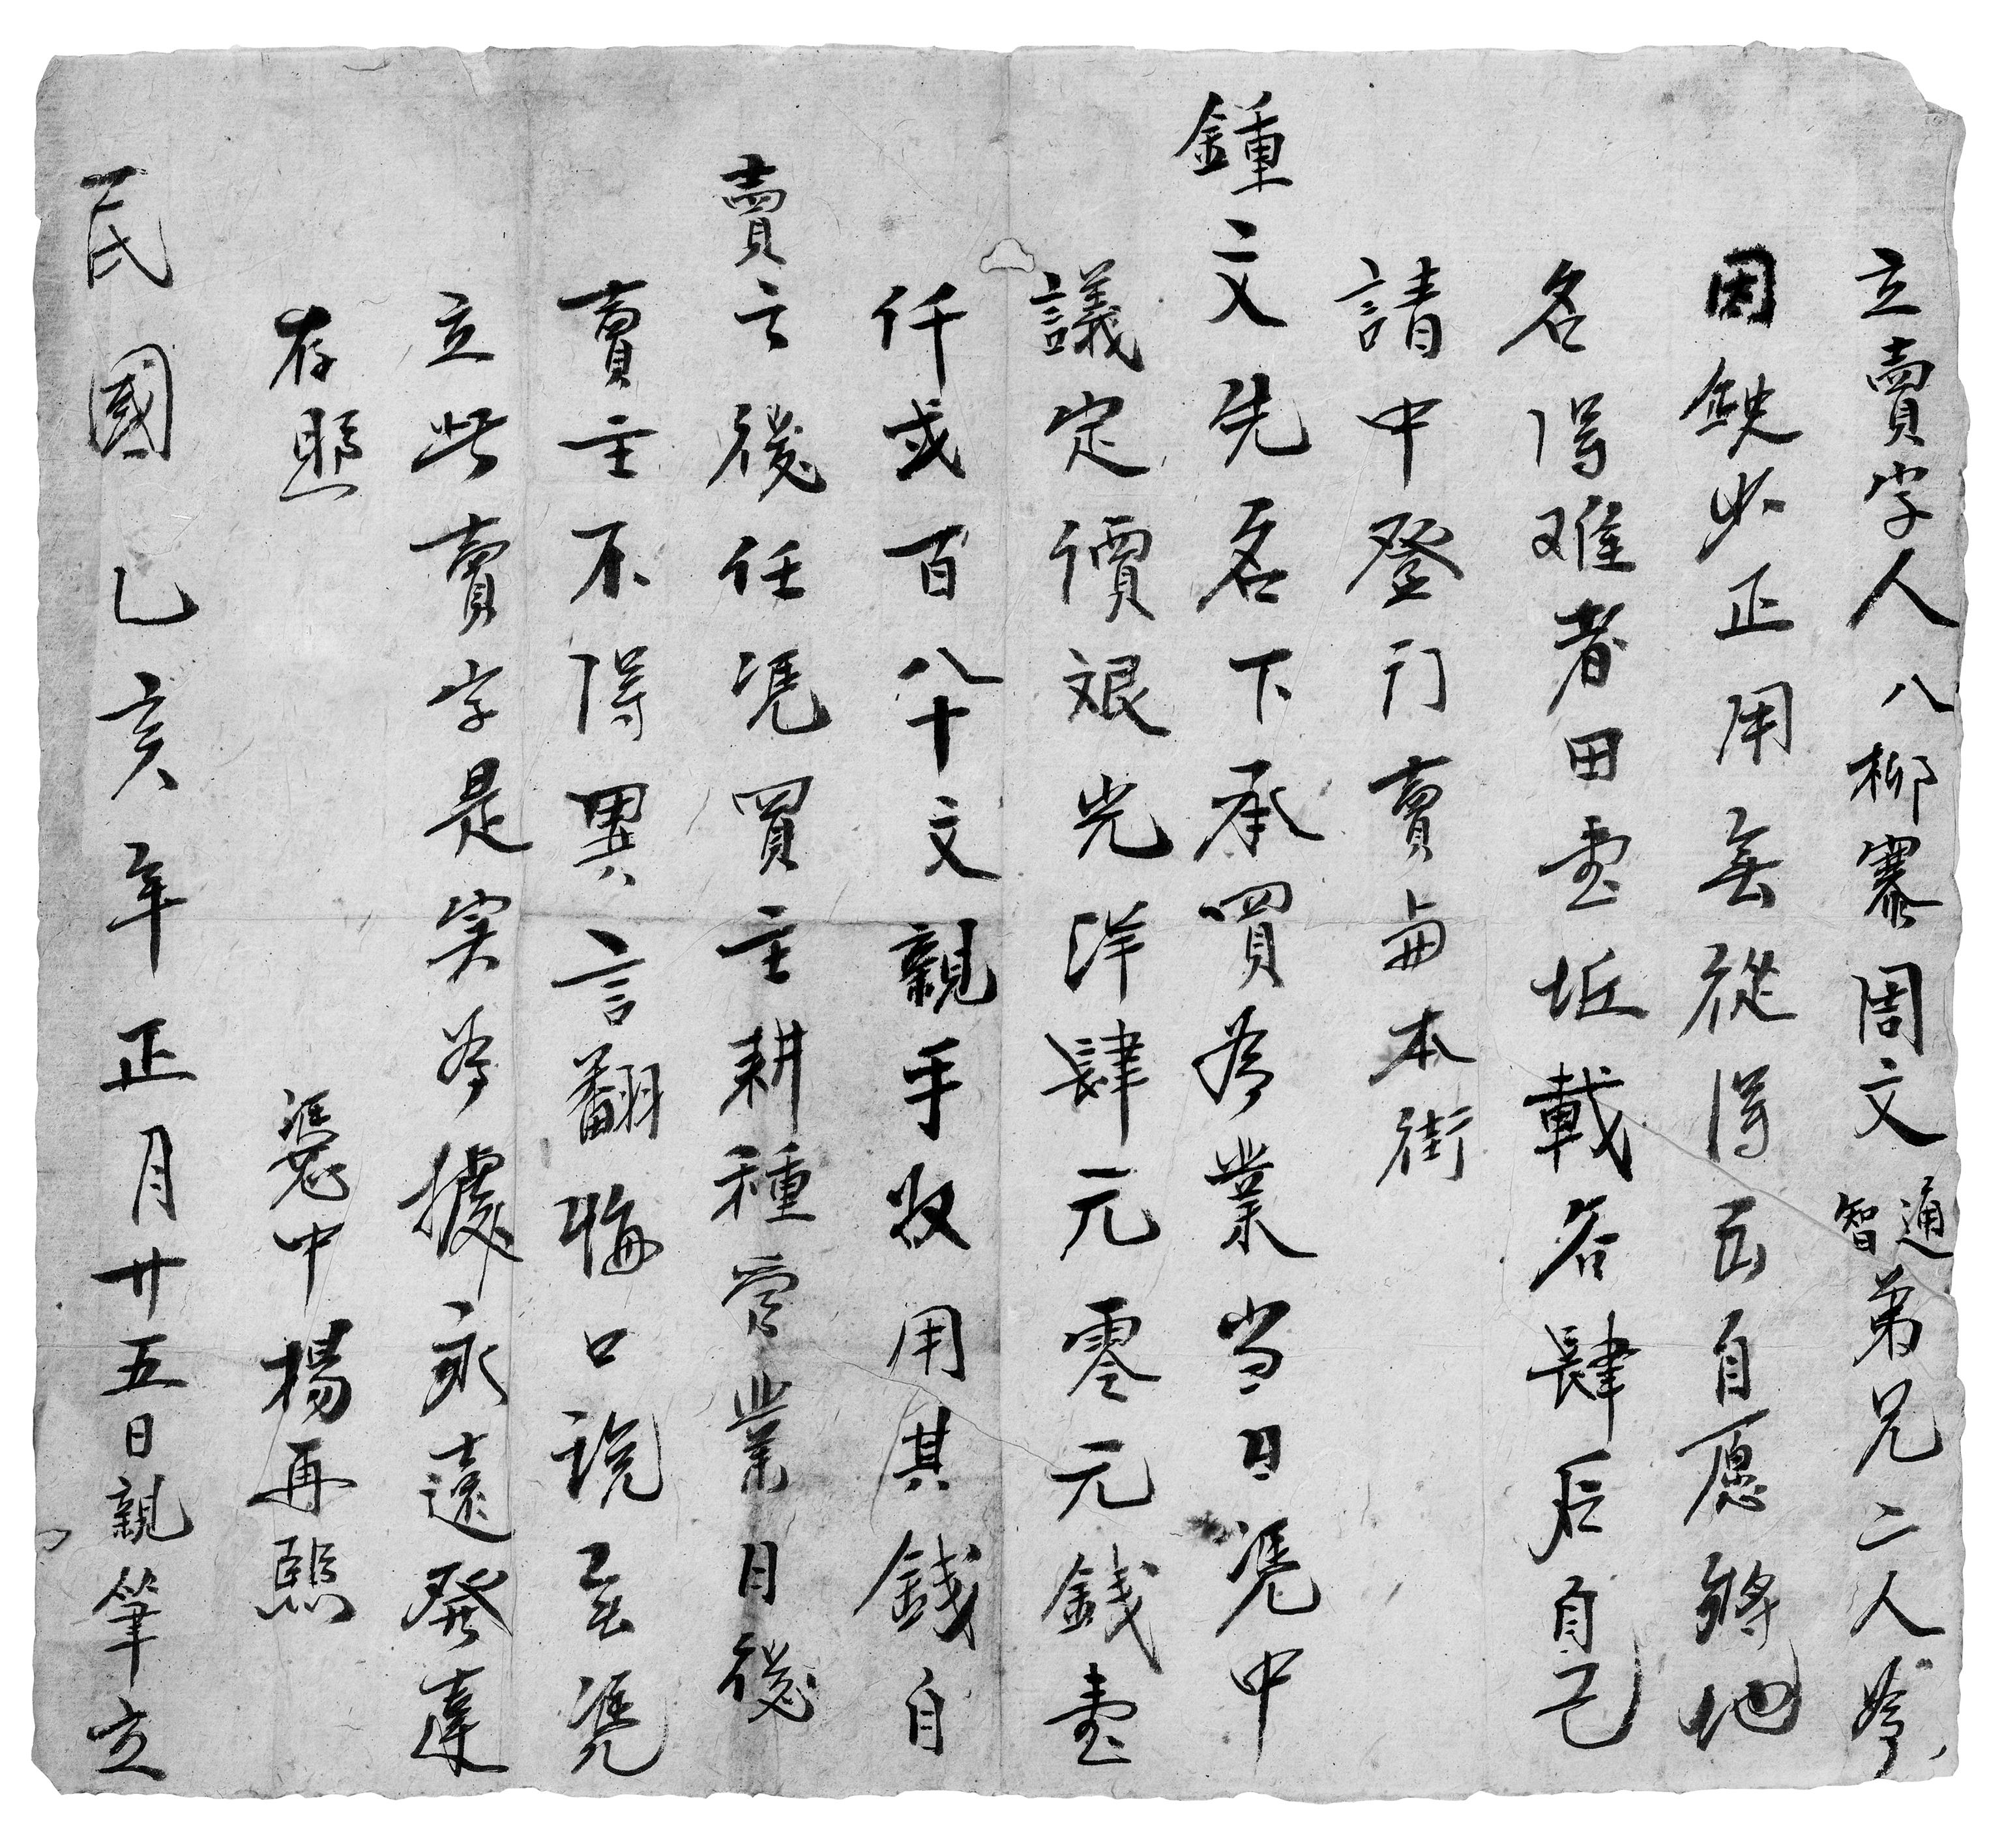 立賣字人八柳寨周文通智弟兄二人為
因缺少正用無從得出自愿將地
名得难者田壹坵載谷肆石自己
請中登门賣與本街
鍾二文先名下承買為業当日凭中
議定價艮光洋肆元零元錢壹
仟贰百八十文親手收用其錢自
賣之後任凭買主耕種管業日後
賣主不得異言翻悔口说無凭
立此賣字是实為據永遠發達
存照
憑中楊再熙
民國乙亥年正月廿五日親筆立